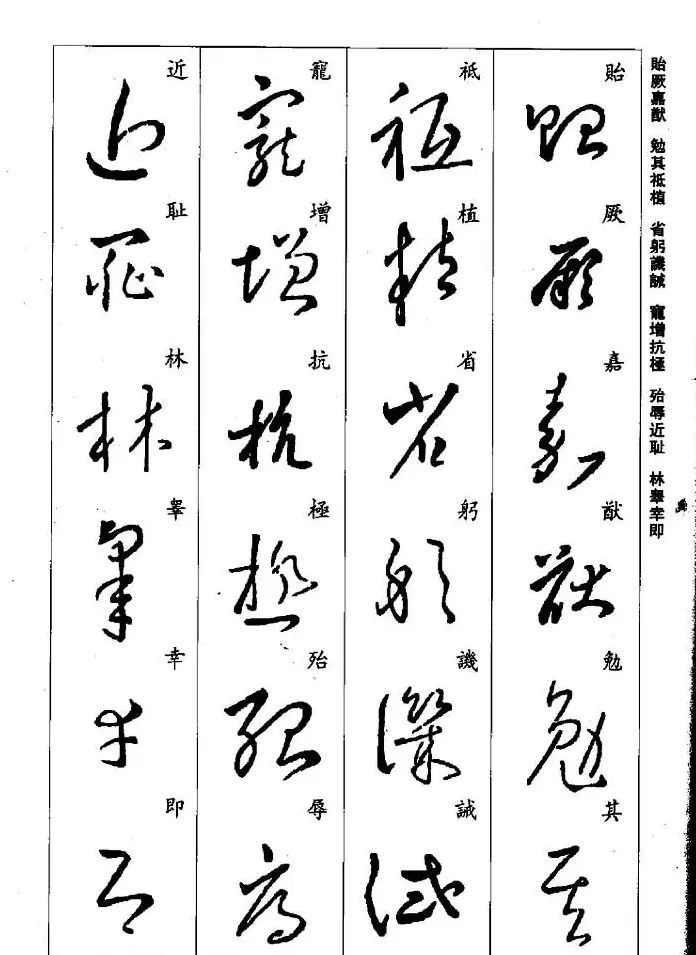 貽厥嘉猷 勉其祗植 省躬譏誡 寵增抗極 殆辱近耻 林睾幸即
貽厥嘉猷勉其
祗植省躬譏誡
寵增抗極殆辱
近耻林睾幸即